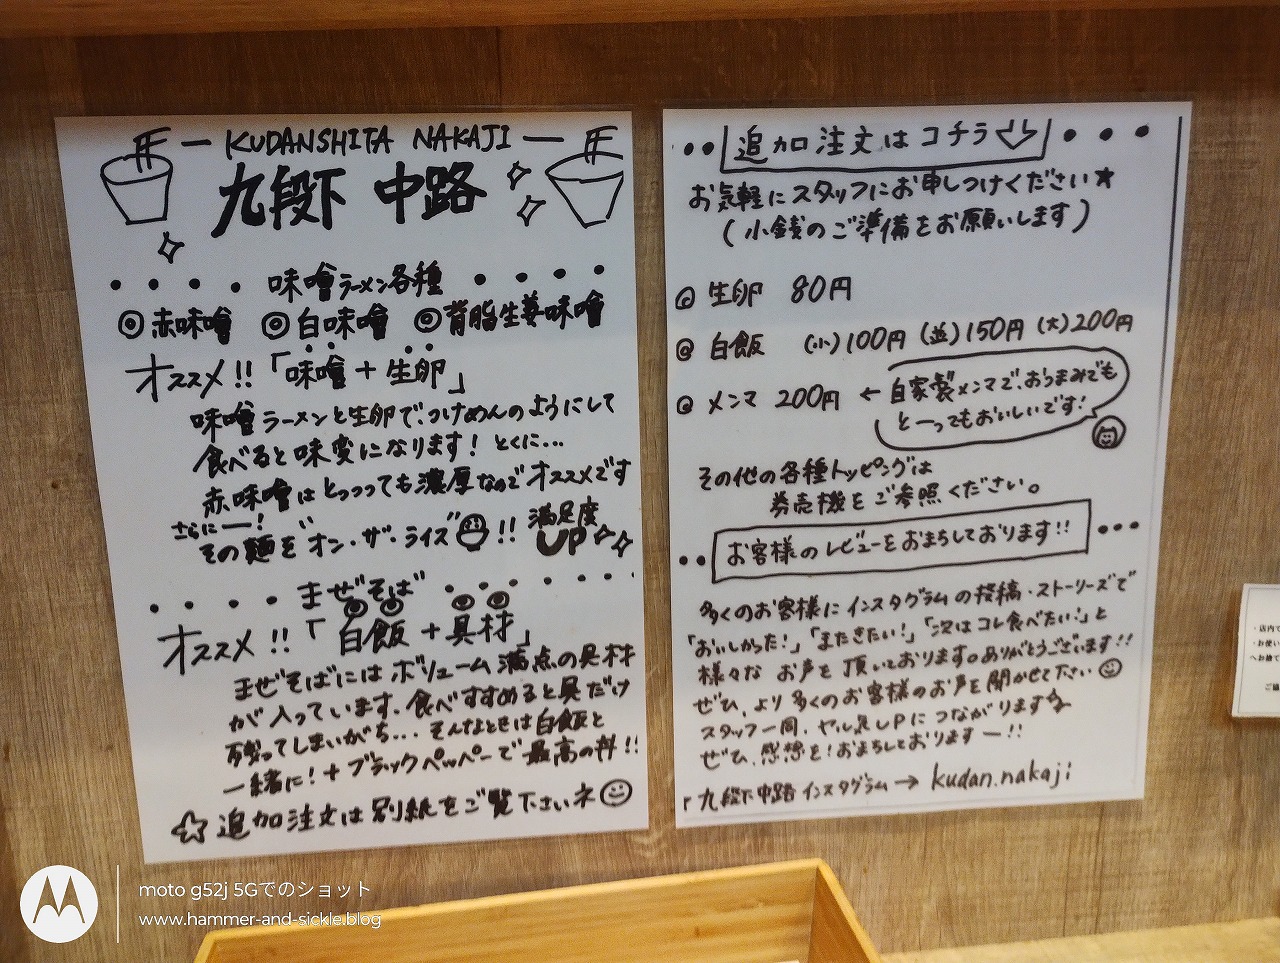 KUDANSHITA NAKAJI
九段下 中路
味噌ラーメン各種
◎赤味噌 ◎白味噌 ◎背脂生姜味噌
オススメ!!「味噌+生卵」
味噌ラーメンと生卵で、つけめんのようにして
食べると味変になります! とくに...
赤味噌はとっっっても濃厚なのでオススメです
さらにー!
その麺を"オン・ザ・ライス"!! 満足度UP
まぜそば
オススメ!!「白飯+具材」
まぜそばにはボリューム満点の具材
が入っています。食べすすめると具だけ
残ってしまいがち...そんなときは白飯と
一緒に!+ブラックペッパーで最高の丼!!
☆追加注文は別紙をご覧下さいネ
追加注文はコチラ
お気軽にスタッフにお申しつけください★
(小銭のご準備をお願いします)
◎ 生卵 80円
◎ 白飯 (小)100円 (並)150円 (大)200円
◎ メンマ 200円 ← 自家製メンマで、おつまみでも
とーってもおいしいです!
その他の各種トッピングは
券売機をご参照ください。
お客様のレビューをおまちしております!!
多くのお客様にインスタグラムの投稿・ストーリーズで
「おいしかった!」「またきたい!」「次はコレ食べたい!」と
様々な お声を頂いております。ありがとうございます!!
ぜひ、より多くのお客様のお声を聞かせて下さい
スタッフ一同、ヤル気UPにつながります☆
ぜひ、感想を!おまちしておりますー!!
「九段下中路 インスタグラム → kudan.nakaji
・店内で
・お使い
へお捨て
moto g52j 5Gでのショット
www.hammer-and-sickle.blog